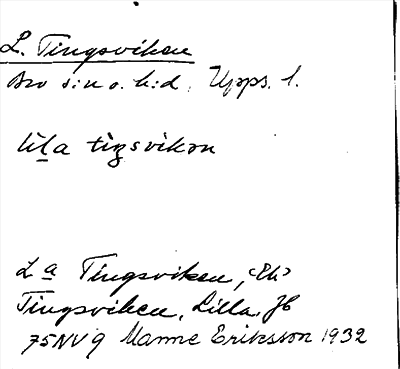 L. Tingsviken
Bro s:n o. h:d, Upps. l.
lila tiŋsvikən
La Tingsviken, <Ek>
Tingsviken, Lilla, JB
75NV9 Manne Eriksson 1932